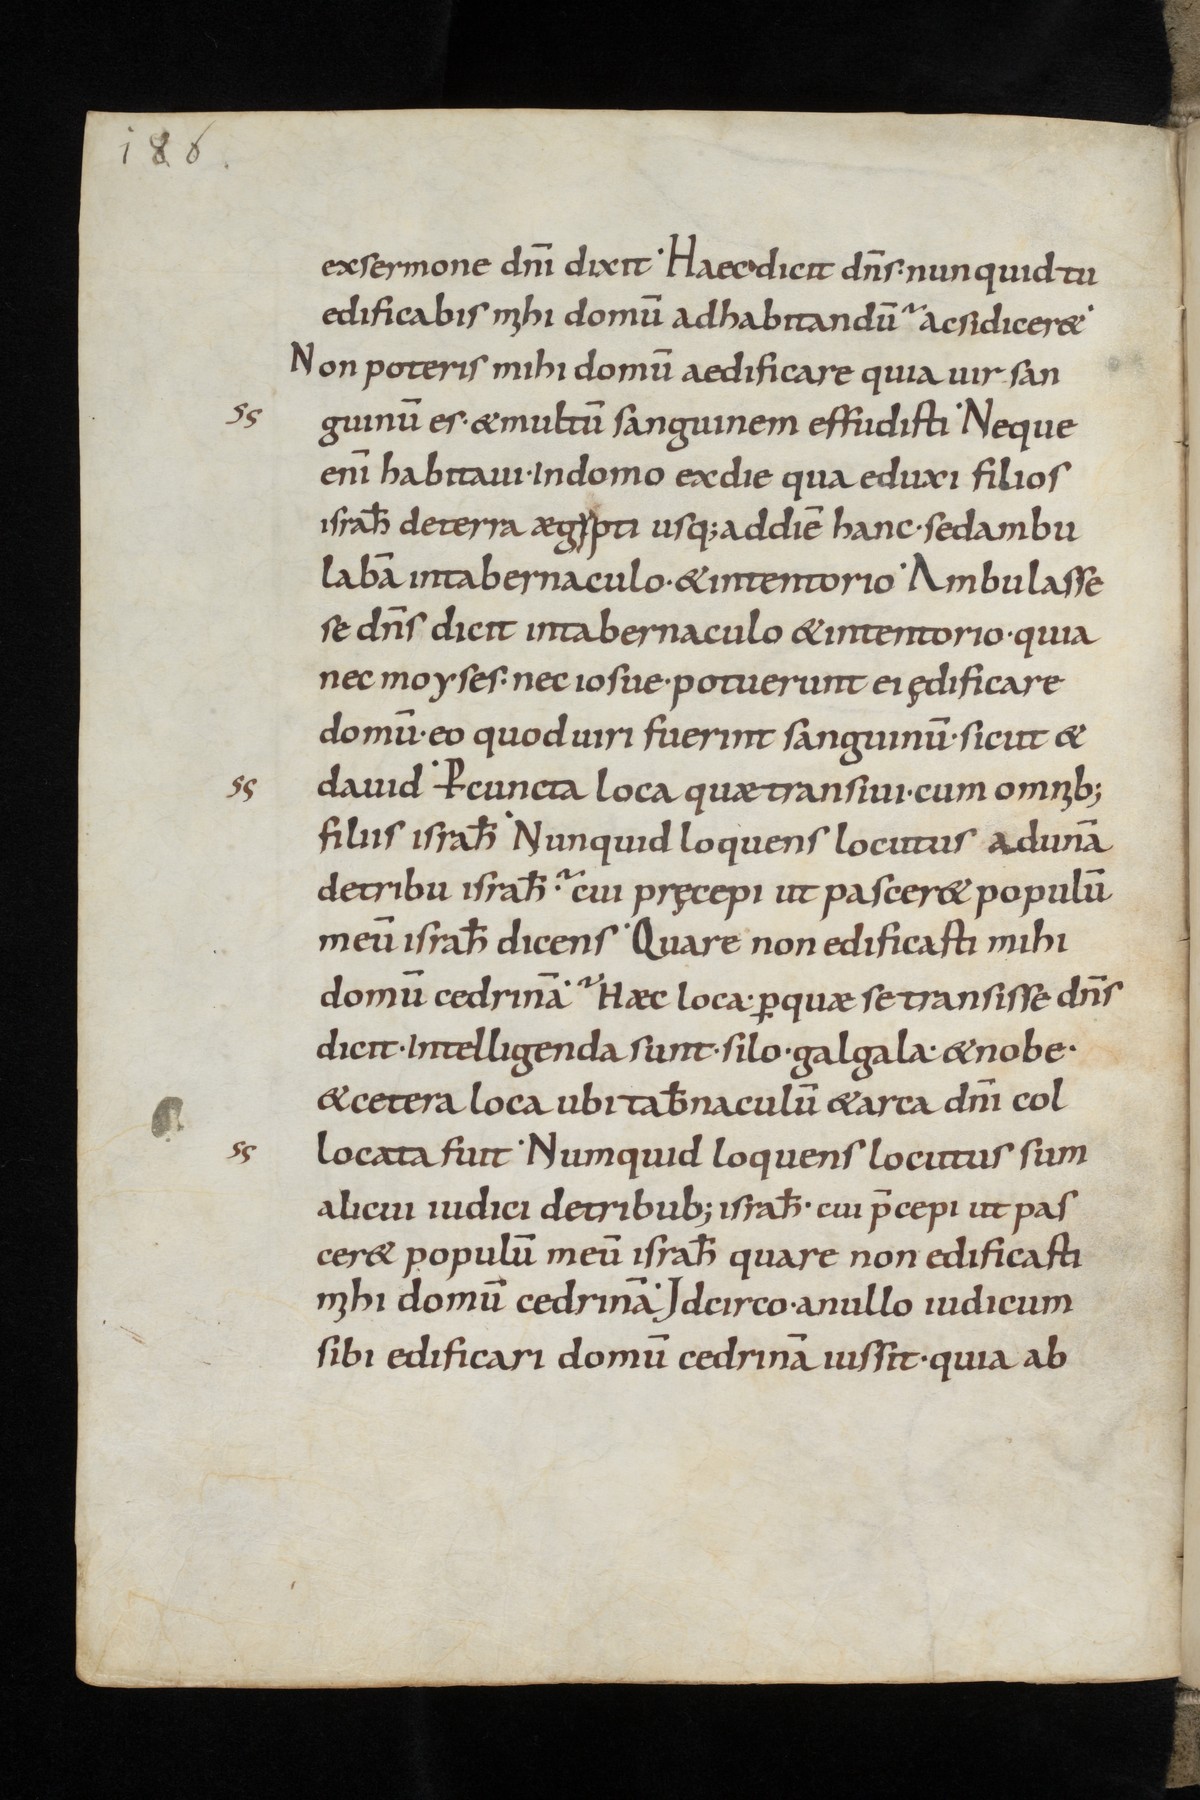 186.
exsermone dnī dixit· Haec dicit dn̄s· nunquid tu
edificabis mihi domū adhabitandū· acsidicer&·
Non poteris mihi domū aedificare quia uir san
ss guinū es· &multū sanguinem effudisti· Neque
enī habitaui· Indomo exdie qua eduxi filios
israhł deterra ægypti usq; addiē hanc· sedambu
labā intabernaculo· &intentorio· Ambulasse
se dn̄s dicit intabernaculo &intentorio· quia
nec moyses· nec iosue· potuerunt ei ędificare
domū· eo quod uiri fuerint sanguinū· sicut &
ss dauid· P̲cuncta loca quæ transiui· cum omnib;
filiis israhł· Nunquid loquens locutus adunā
detribu israhł· cui pręcepi ut pascer& populū
meū israhł dicens· Quare non edificasti mihi
domū cedrinā· Hæc loca· ꝑquæ se transisse dn̄s
dicit· Intelligenda sunt· silo· galgala· &nobe·
&cetera loca ubi tab̄naculū &arca dnī col
ss locata fuit· Numquid loquens locutus sum
alicui iudici detribub; israhł· cui p̄cepi ut pas
cer& populū meū israhł quare non edificasti
mihi domū cedrinā· Idcirco· anullo iudicum
sibi edificari domū cedrinā iussit· quia ab